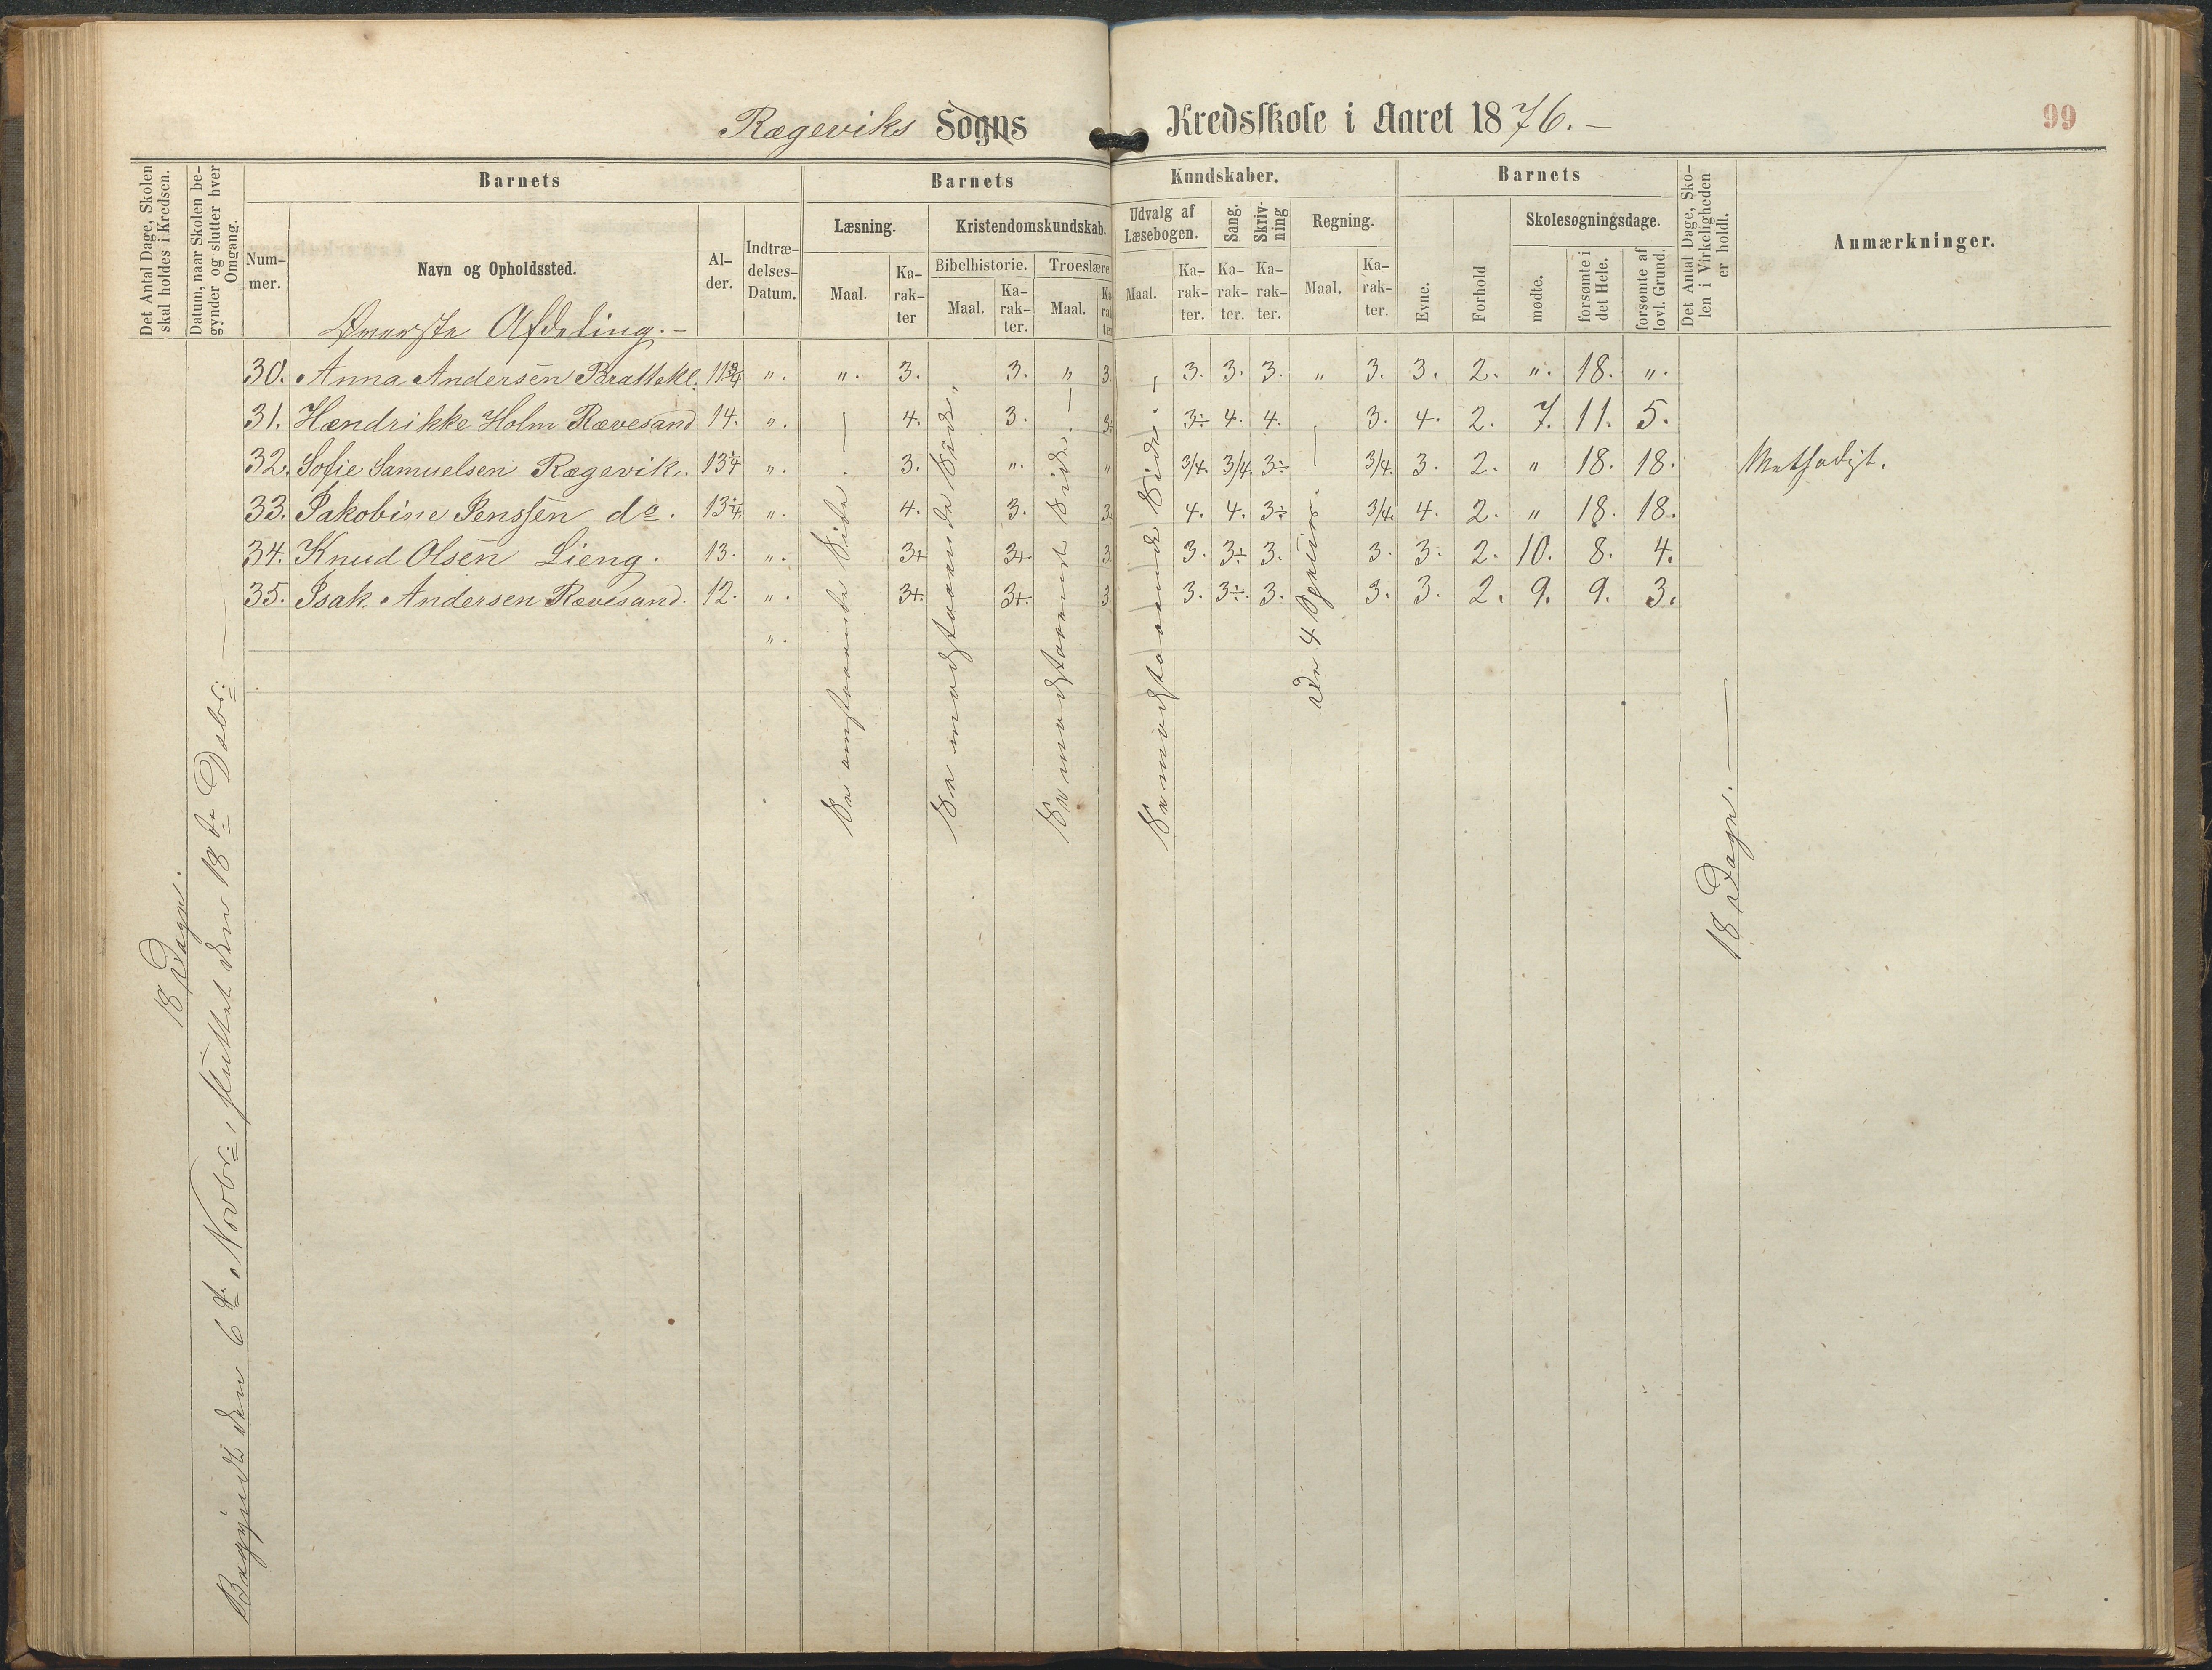 Rægeviks Sogns Kredsskole i Aaret 1876.–
99
Det Antal Dage, Skolen skal holdes i Kredsen.
Datum, naar Skolen begynder og slutter hver Omgang.
Barnets
Nummer.
Navn og Opholdssted.
Alder.
Indtrædelses-Datum.
Barnets Kundskaber.
Læsning.
Maal.
Karakter
Kristendomskundskab.
Bibelhistorie.
Maal.
Karakter.
Troeslære.
Maal.
Karakter
Udvalg af Læsebogen.
Maal.
Karakter.
Sang.
Karakter.
Skrivning
Karakter.
Regning.
Maal.
Karakter.
Barnets
Evne.
Forhold
Skolesøgningsdage.
mødte.
forsømte i det Hele.
forsømte af lovl. Grund.
Det Antal Dage, Skolen i Virkeligheden er holdt.
Anmærkninger.
Øverste Afdeling.–
30. Anna Andersen Brattekl. 11¾ „. „. 3. 3. „ 3. 3. 3. 3. „ 3. 3. 2. „. 18. „.
31. Hændrikke Holm Rævesand 14. „. 4. 3. 3. 3÷ 4. 4. 3. 4. 2. 7. 11. 5.
32. Sofie Samuelsen Rægevik. 13¼ „. 3. „. „ 3/4. 3/4. 3÷ 3/4. 3. 2. „ 18. 18.
33. Jakobine Jenssen do. 13¼. „. 4. 3. 3. 4. 4. 3÷ 3/4. 4. 2. „ 18. 18.
34. Knud Olsen Lieng. 13. „. 3+ 3+ 3. 3. 3÷ 3. 3. 3. 2. 10. 8. 4.
35. Isak Andersen Rævesand. 12. „. 3+. 3+. 3. 3. 3÷. 3. 3. 3. 2. 9. 9. 3.
„.
18 Dage.
Begyndt den 6te Novbr:, sluttet den 18de Debr: —
Se modstaaende Side.
Se modstaaende Side.
Se modstaaende Side.
De 4 Species.
18 Dage. —